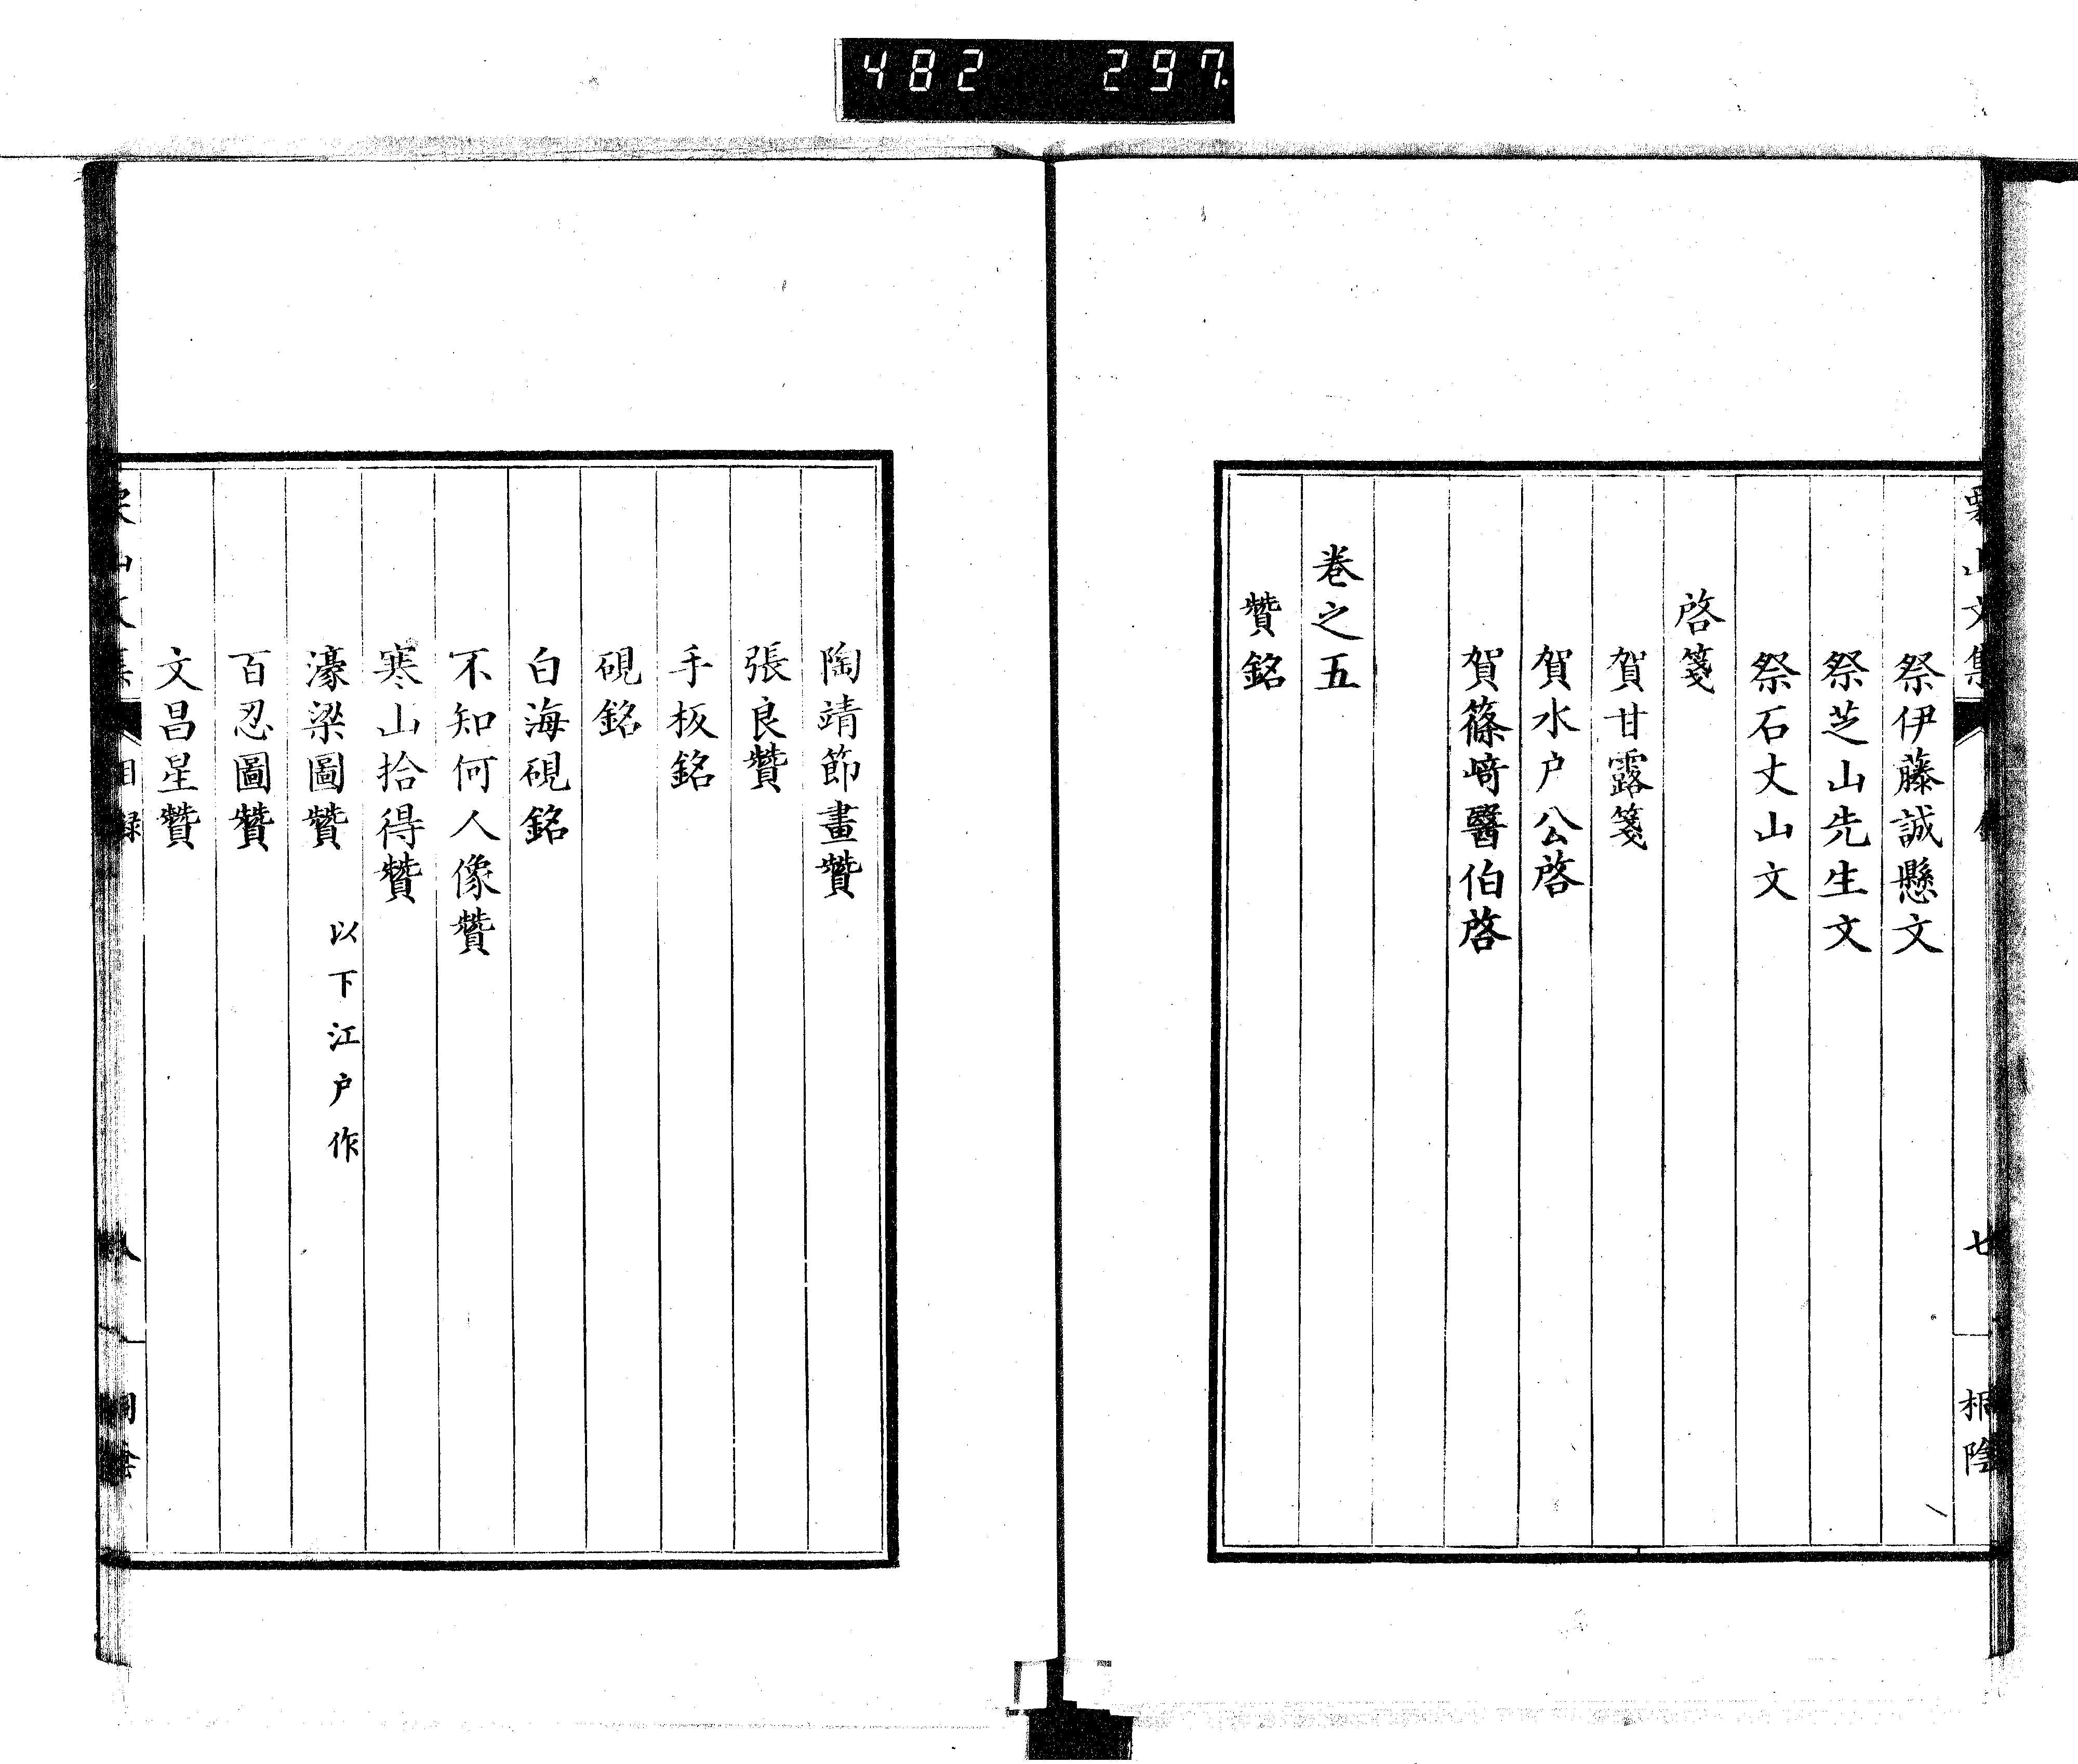 482 297
栗山文集
七
桐陰
祭伊藤誠懸文
祭芝山先生文
祭石丈山文
啓箋
賀甘露箋
賀水户公啓
賀篠﨑醫伯啓
巻之五
贊銘
陶靖節畫贊
張良贊
手板銘
硯銘
白海硯銘
不知何人像贊
寒山拾得贊
濠梁圖贊 以下江户作
百忍圖贊
文昌星贊
栗山文集
目録
八
桐陰